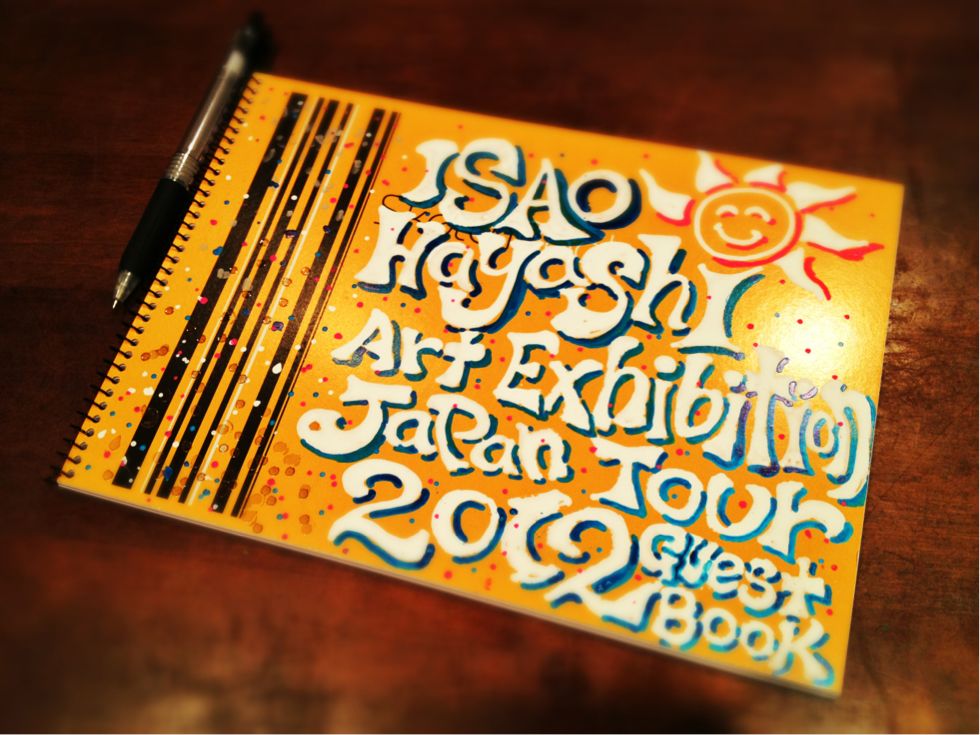 ISAO
HayashI
Art Exhibition
Japan Tour
2012 Guest
Book